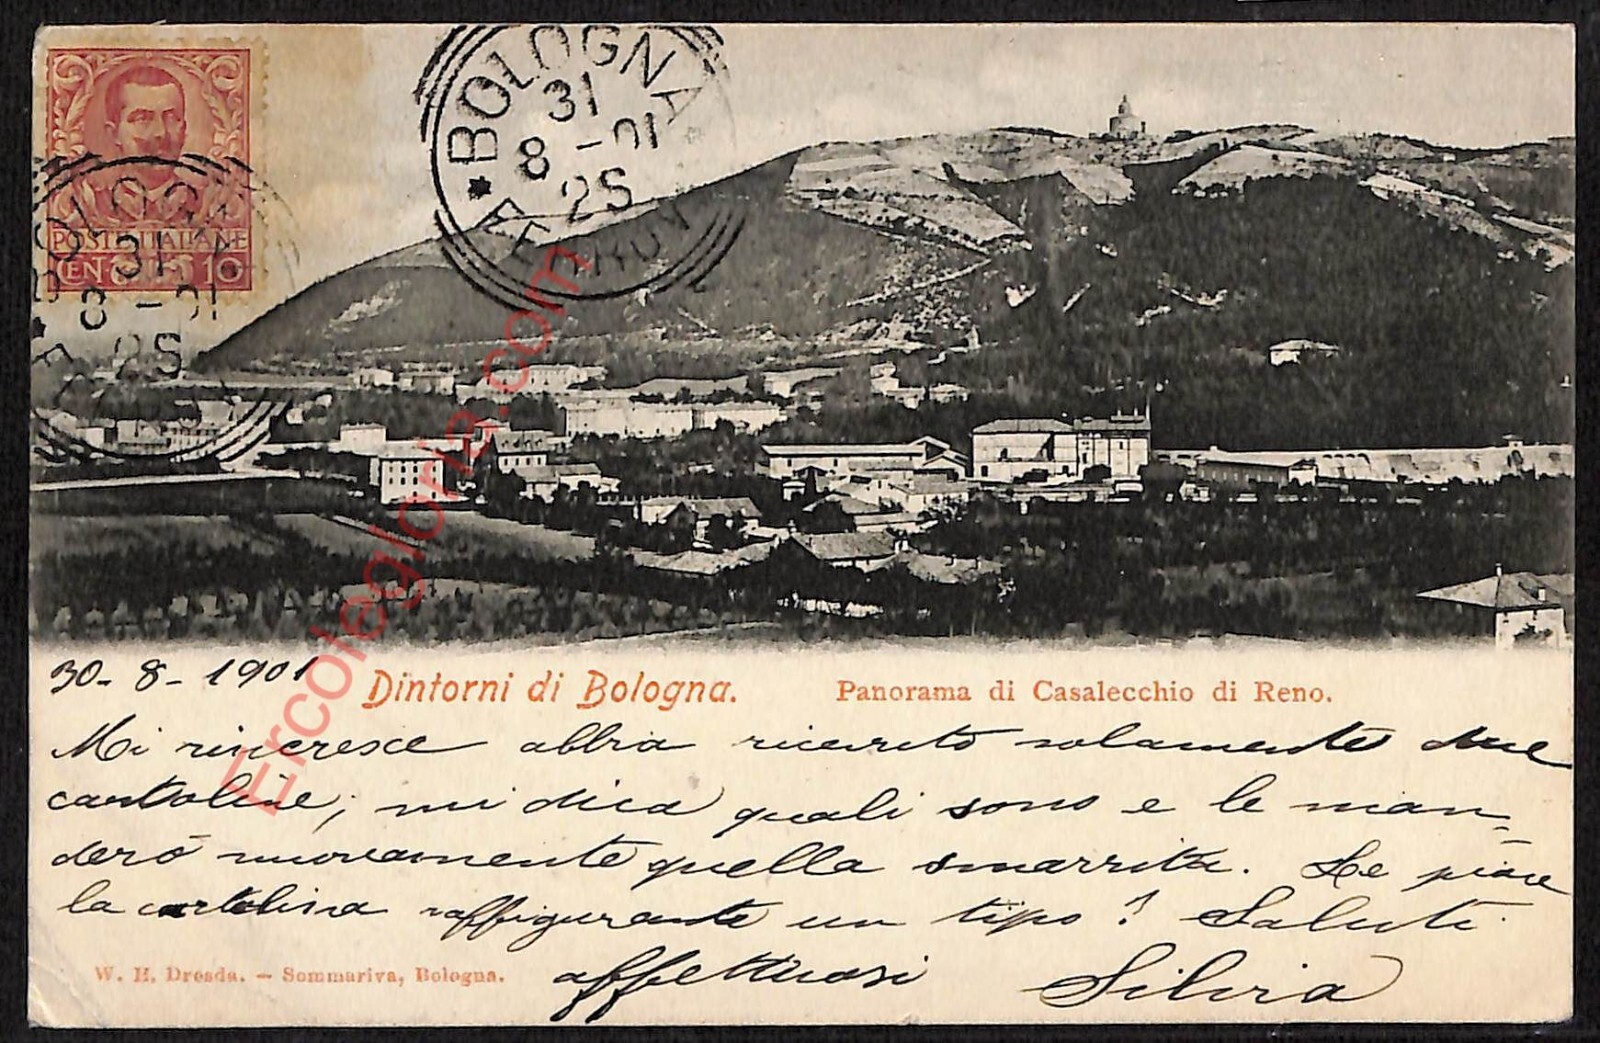 BOLOGNA
31
8 - 01
2S
FERROV
POSTE ITALIANE
CEN 10
BOLOGNA
31
8 - 01
2S
Ercolegloria.com
30 - 8 - 1901
Dintorni di Bologna.
Panorama di Casalecchio di Reno.
Mi rincresce abbia ricevuto solamente due
cartoline; mi dica quali sono e le man-
derò nuovamente quella smarrita. Le piace
la cartolina raffigurante un tipo? Saluti
affettuosi Silvia
W. H. Dresda. — Sommariva, Bologna.